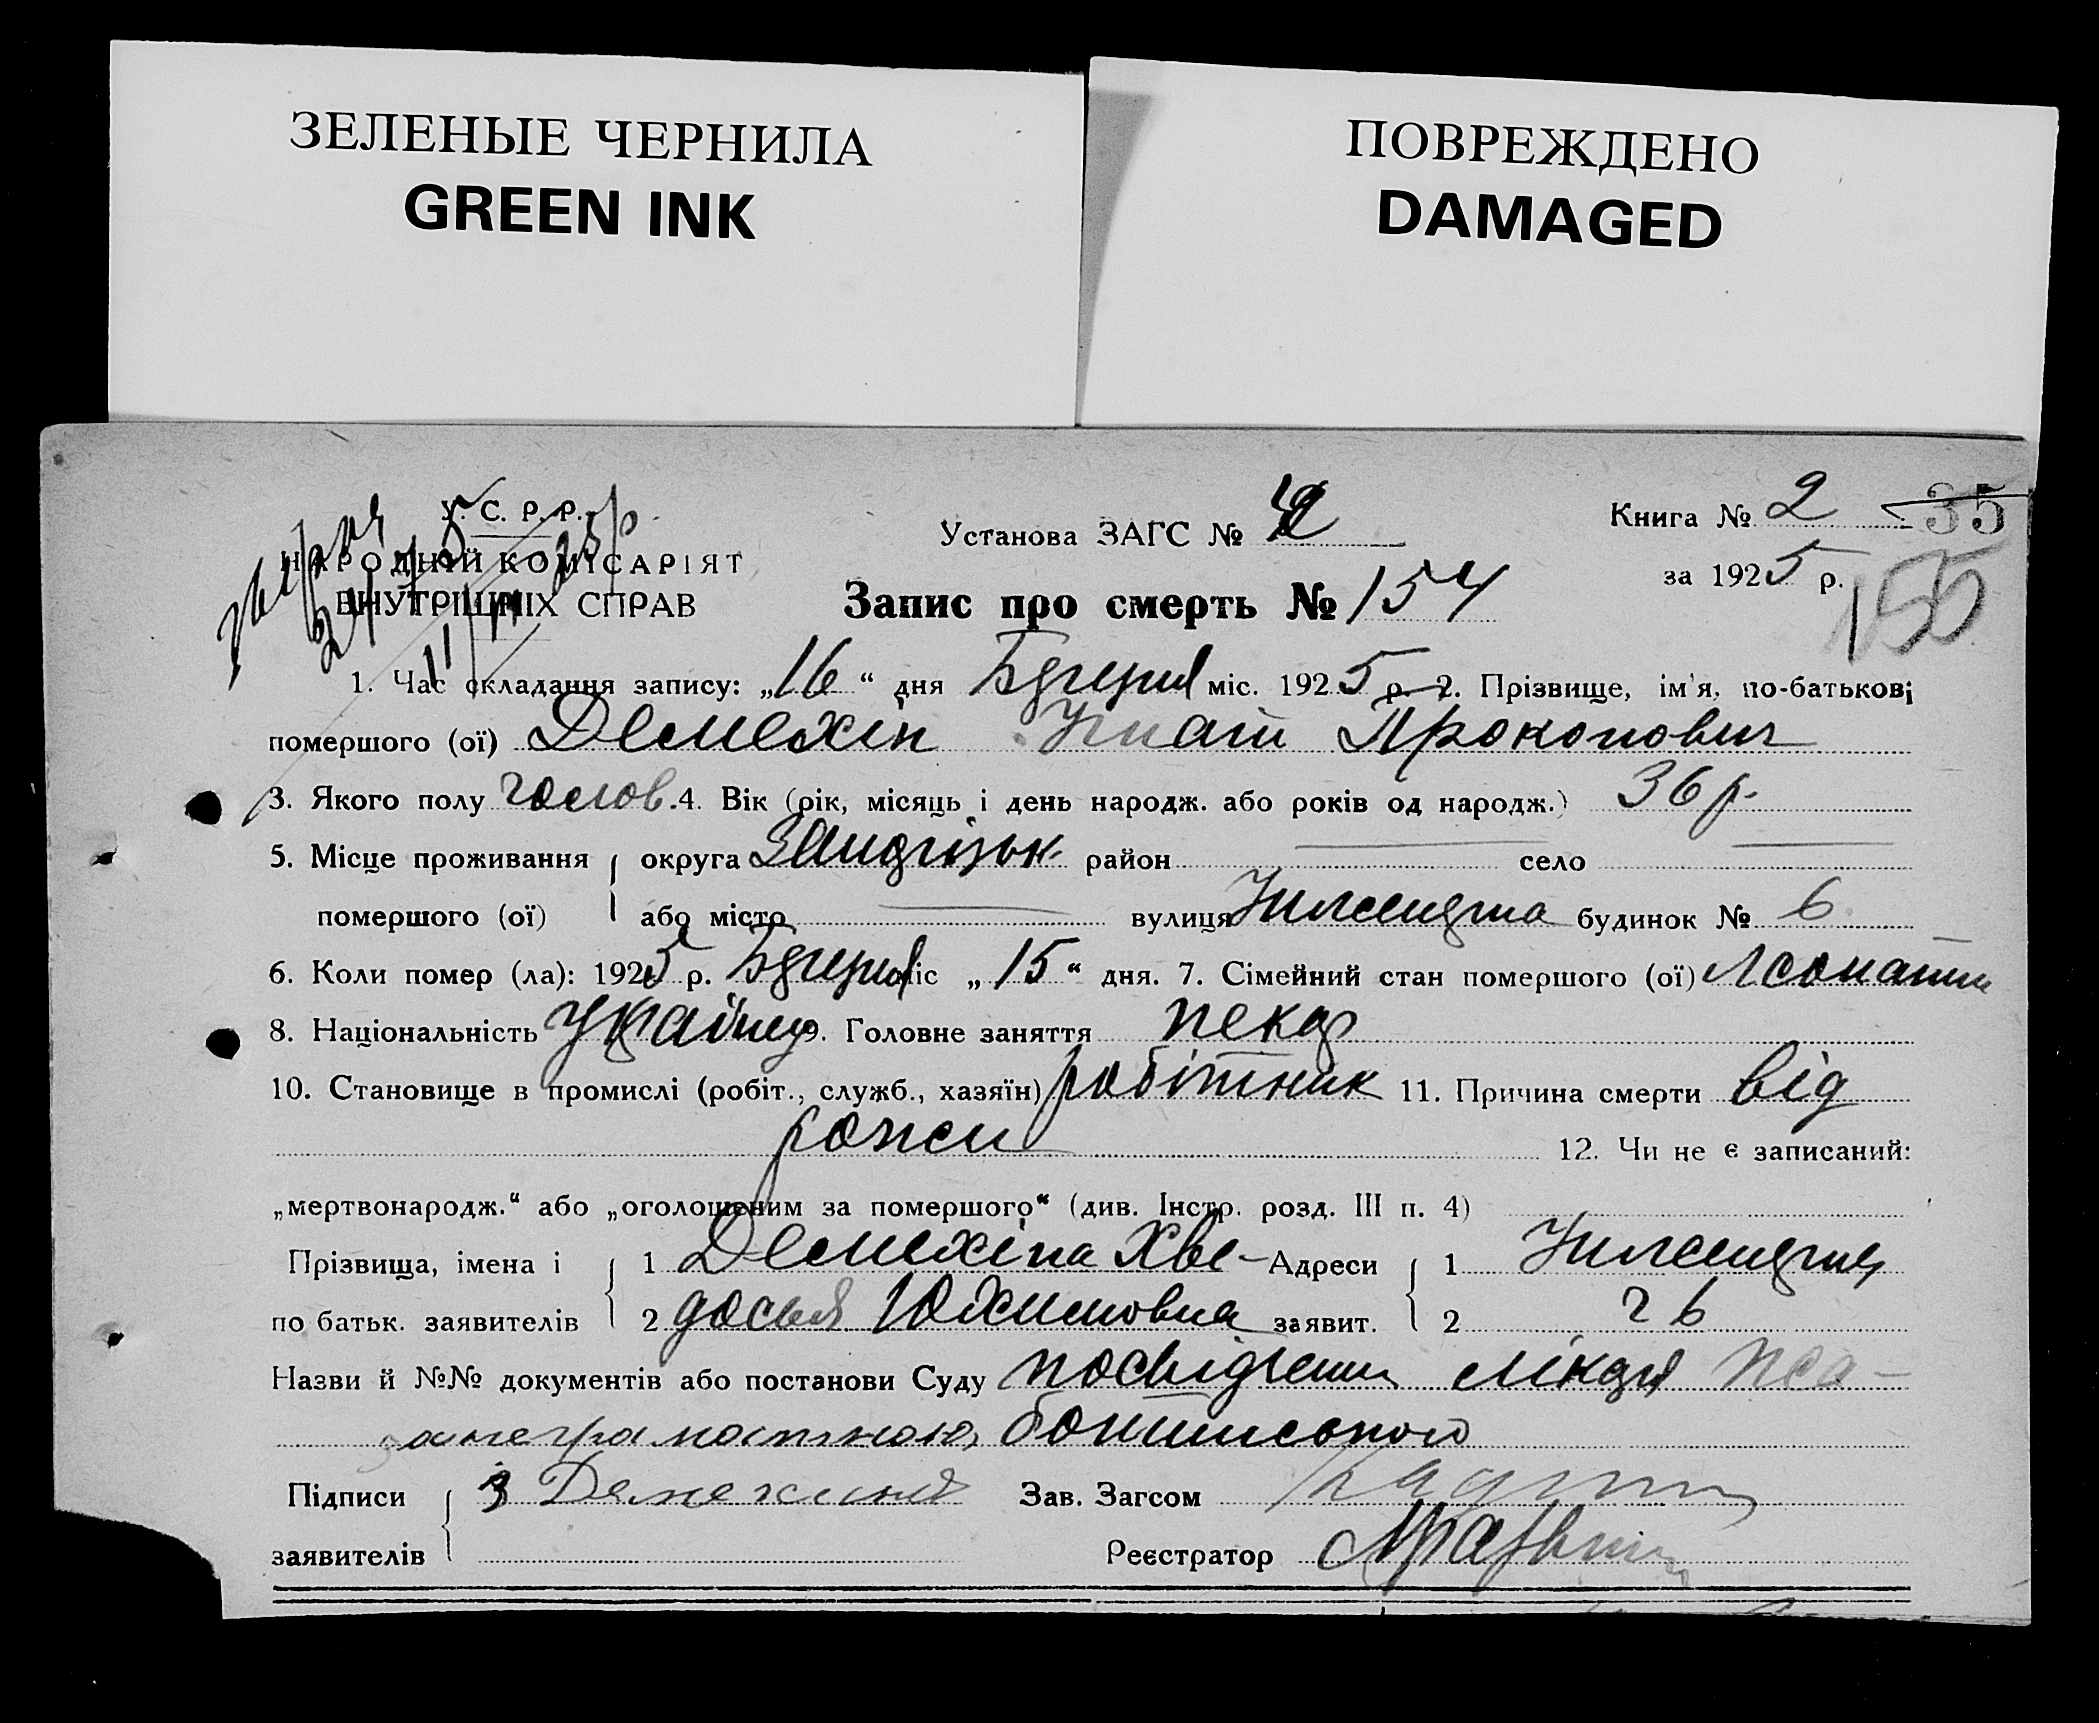 ЗЕЛЕНЫЕ ЧЕРНИЛА
GREEN INK
ПОВРЕЖДЕНО
DAMAGED
У. С. Р. Р.
НАРОДНІЙ КОМІСАРІЯТ
ВНУТРІШНІХ СПРАВ
Установа ЗАГС №
Книга № 2 35
за 1925 р.
155
Запис про смерть № 154
1. Час складання запису: „16“ дня міс. 1925 р. 2. Прізвище, ім'я, по-батькові
помершого (ої) Демехін Гнат Прокопович
3. Якого полу 4. Вік (рік, місяць і день народж. або років од народж.) 36 р.
5. Місце проживання округа район село
помершого (ої) або місто вулиця будинок № 6
6. Коли помер (ла): 1925 р. міс „15“ дня. 7. Сімейний стан помершого (ої) Жонатий
8. Національність Українец 9. Головне заняття пекар
10. Становище в промислі (робіт., служб., хазяїн) робітник 11. Причина смерти від
рожи
12. Чи не є записаний:
„мертвонародж.“ або „оголошеним за помершого“ (див. Інстр. розд. III п. 4)
Прізвища, імена і 1 Демехіна Хве- Адреси 1
по батьк. заявителів 2 досья Юхимовна заявит. 2 6
Назви й №№ документів або постанови Суду посвідчення лікаря
за неграмотною,
Підписи Демехиной Зав. Загсом
заявителів Реєстратор